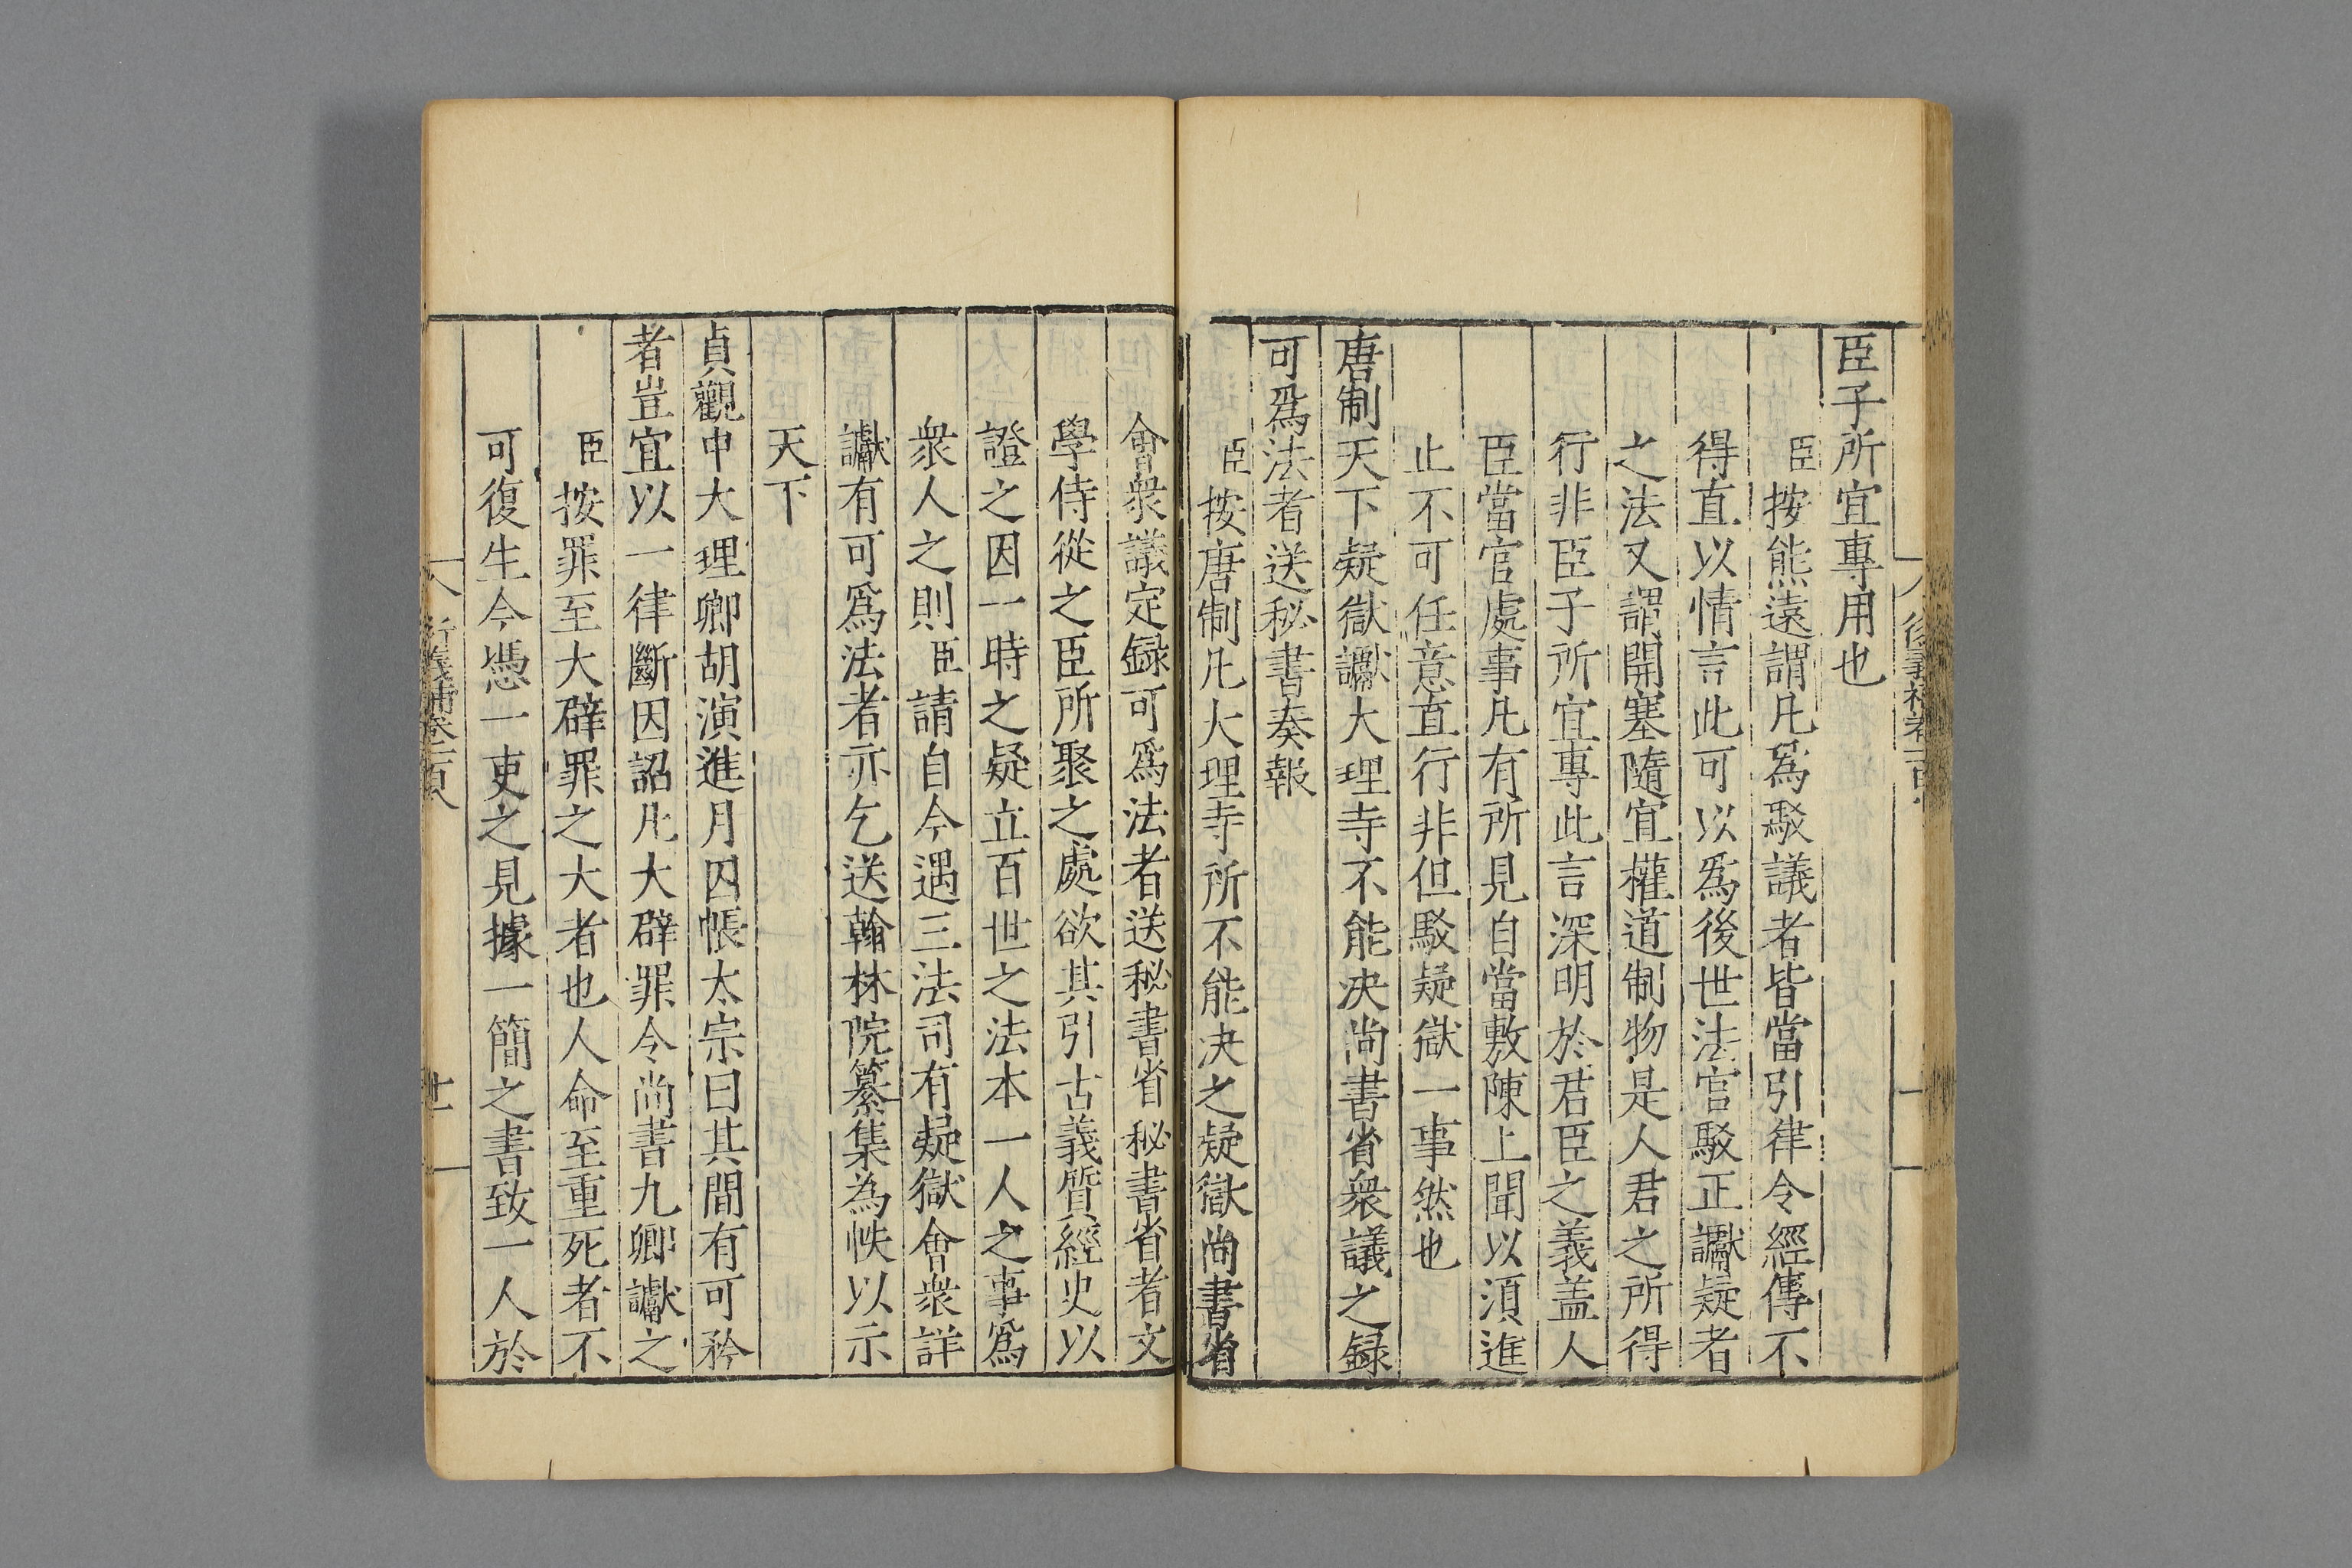 臣子所宜專用也
臣按熊遠謂凡爲駁議者皆當引律令經傳不
得直以情言此可以爲後世法官駁正讞疑者
之法又謂開塞隨宜權道制物是人君之所得
行非臣子所宜專此言深明於君臣之義盖人
臣當官處事凡有所見自當敷陳上聞以須進
止不可任意直行非但駁疑獄一事然也
唐制天下疑獄讞大理寺不能决尚書省衆議之録
可爲法者送秘書奏報
臣按唐制凡大理寺所不能决之疑獄尚書省
會衆議定録可爲法者送秘書省秘書省者文
學侍從之臣所聚之處欲其引古義質經史以
證之因一時之疑立百世之法本一人之事爲
衆人之則臣請自今遇三法司有疑獄會衆詳
讞有可爲法者亦乞送翰林院纂集為帙以示
天下
貞觀中大理卿胡演進月囚帳太宗曰其間有可矜
者豈宜以一律斷因詔凡大辟罪令尚書九卿讞之
臣按罪至大辟罪之大者也人命至重死者不
可復生今憑一吏之見據一簡之書致一人於